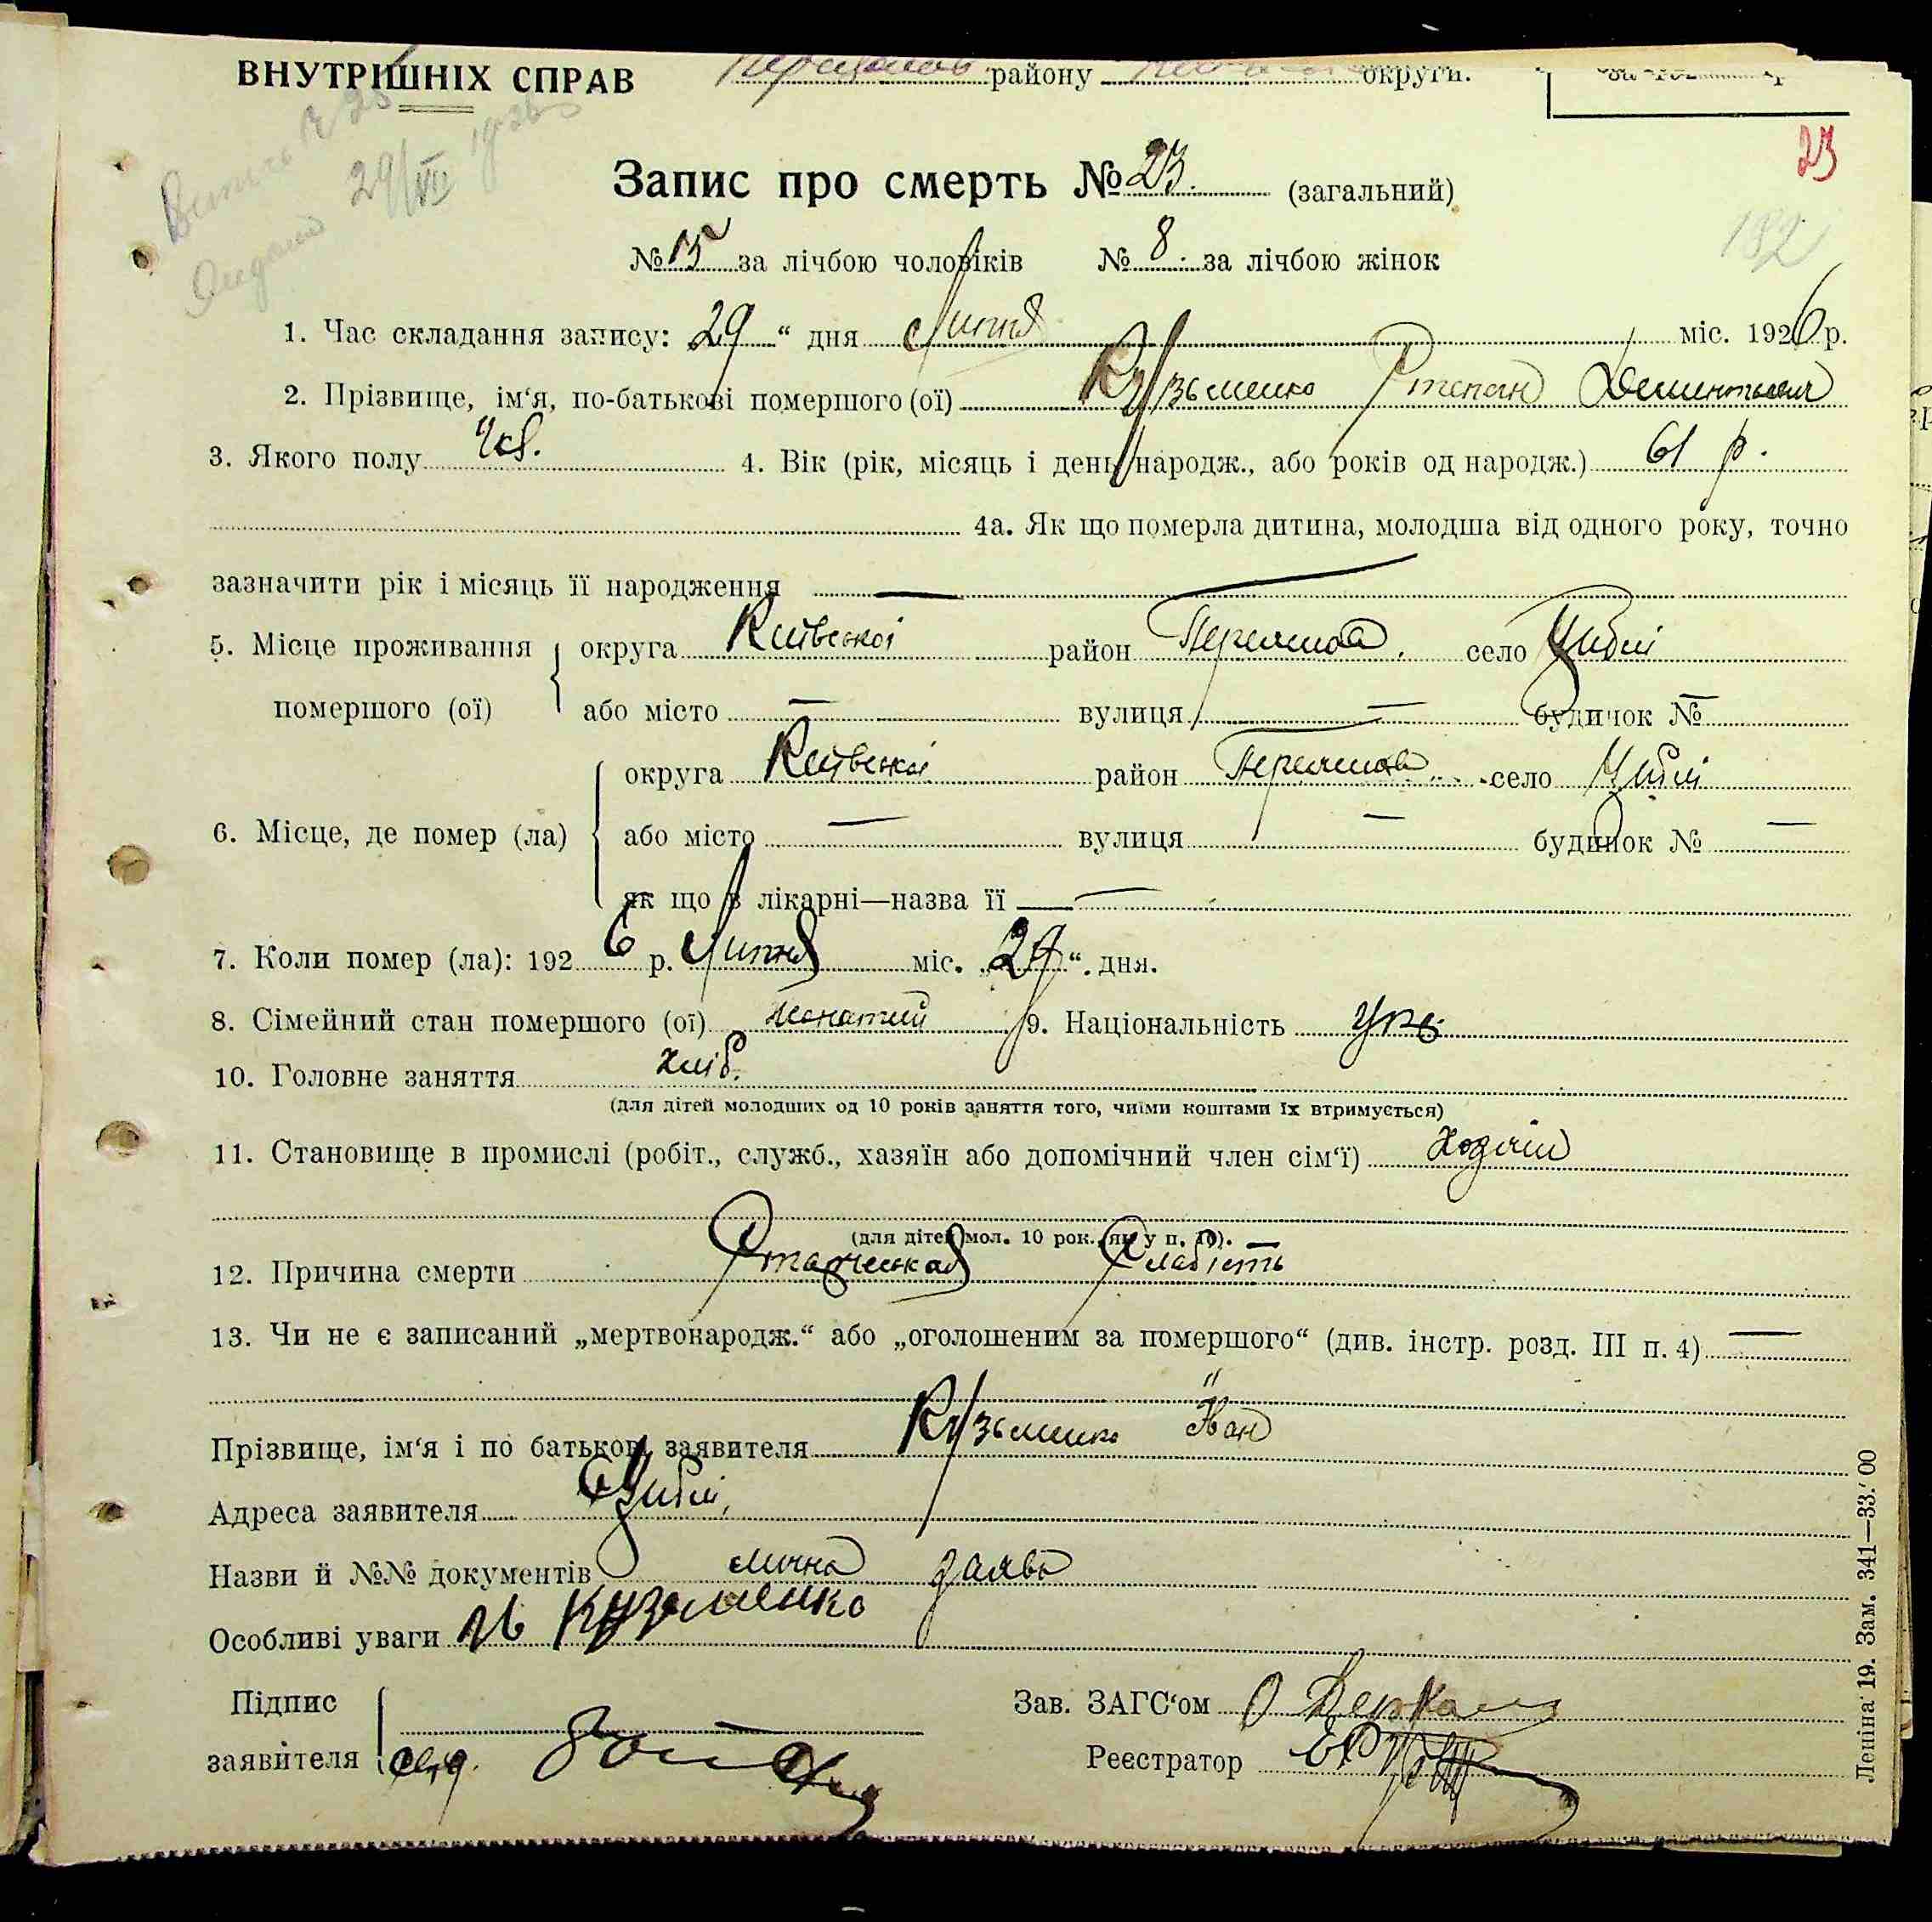 ВНУТРІШНІХ СПРАВ району округи.
29/VII 1926
23
Запис про смерть № 23. (загальний)
182
№ 15 за лічбою чоловіків № 8. за лічбою жінок
1. Час складання запису: 29 “ дня Липня міс. 1926 р.
2. Прізвище, ім‘я, по-батькові помершого (ої) Кузьменко Степан Дементьевич
3. Якого полу Чол. 4. Вік (рік, місяць і день народж., або років од народж.) 61 р.
4а. Як що померла дитина, молодша від одного року, точно
зазначити рік і місяць її народження —
5. Місце проживання округа Київської район Переяслав. село Циблі
помершого (ої) або місто — вулиця — будинок № —
округа Київської район Переяслав село Циблі
6. Місце, де помер (ла) або місто — вулиця — будинок № —
як що в лікарні—назва її —
7. Коли помер (ла): 1926 р. Липня міс. „29“ дня.
8. Сімейний стан помершого (ої) женатий 9. Національність Укр.
10. Головне заняття хліб.
(для дітей молодших од 10 років заняття того, чиїми коштами їх втримується)
11. Становище в промислі (робіт., служб., хазяїн або допомічний член сім‘ї) Хозяїн
(для дітей мол. 10 рок. як у п. 10).
12. Причина смерти Старческая Слабість
13. Чи не є записаний „мертвонародж.“ або „оголошеним за помершого“ (див. інстр. розд. III п. 4) —
Прізвище, ім‘я і по батькові заявителя Кузьменко Іван
Адреса заявителя с. Циблі,
Назви й №№ документів лична заява
Особливі уваги Ив Кузьменко
Підпис Зав. ЗАГС‘ом
заявителя Реєстратор
Леніна 19. Зам. 341—33.000